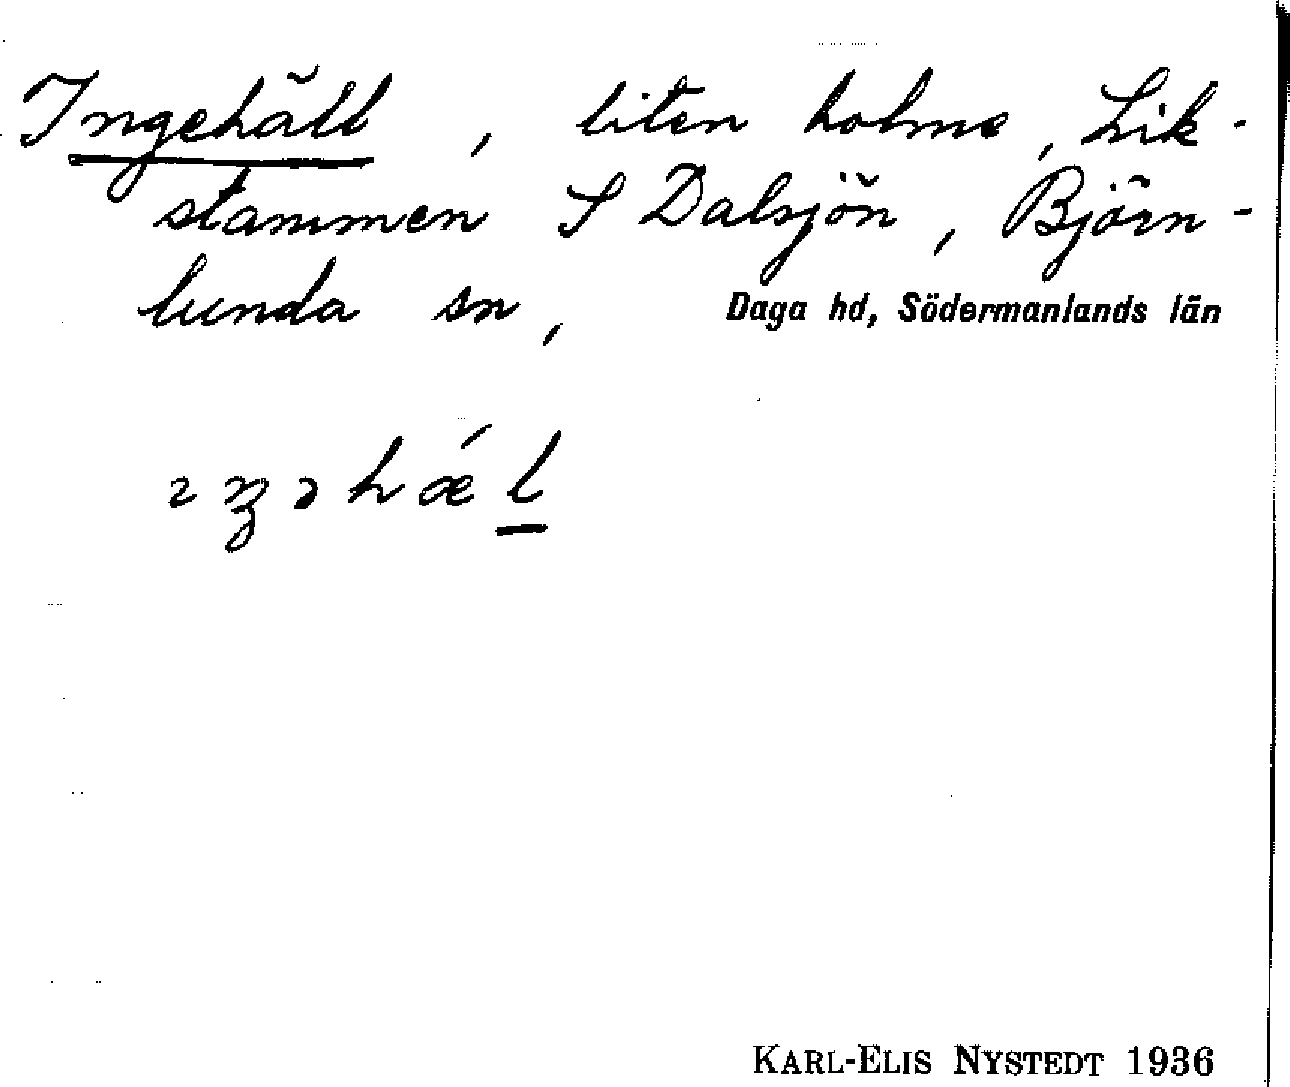 Ingehäll, liten holme, Lik-
stammen S Dalsjön, Björn-
lunda sn, Daga hd, Södermanlands län
ıŋəhǽl
KARL-ELIS NYSTEDT 1936